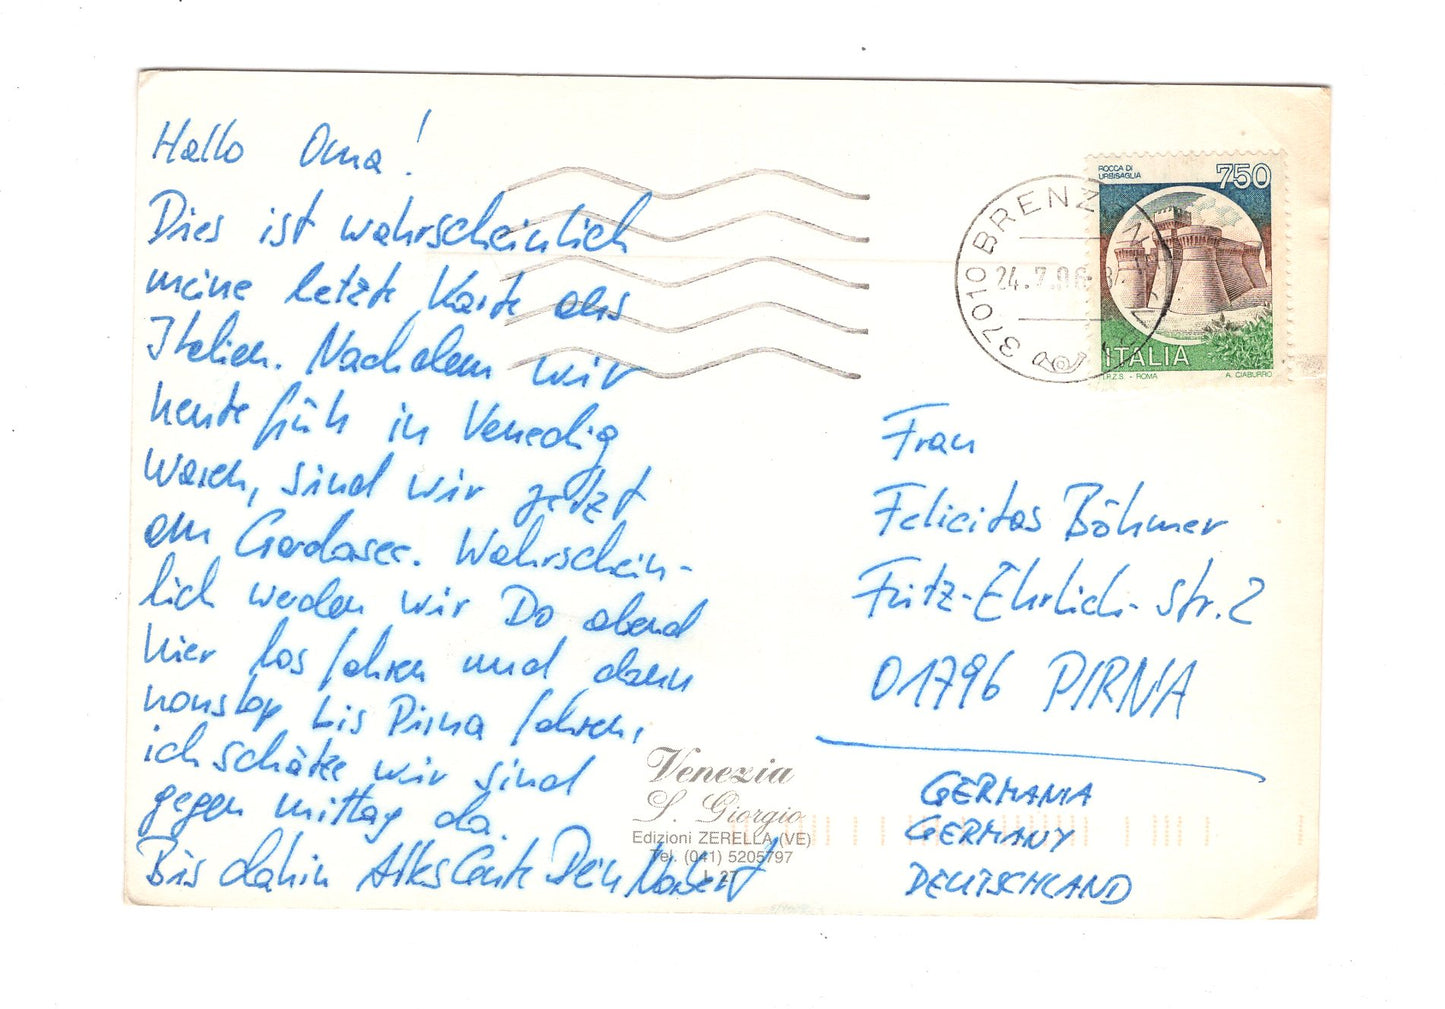 Hallo Oma!
Dies ist wahrscheinlich
meine letzte Karte aus
Italien. Nachdem wir
heute früh in Venedig
waren, sind wir jetzt
am Gardasee. Wahrschein-
lich werden wir Do abend
hier los fahren und dann
nonstop bis Pirna fahren,
ich schätze wir sind
gegen mittag da.
Bis dahin Alles Gute Dein Norbert
Venezia
S. Giorgio
Edizioni ZERELLA (VE)
Tel. (041) 5205797
L 27
37010 BRENZONE
24.7.96
ROCCA DI
URBISAGLIA
750
ITALIA
I.P.Z.S. - ROMA
A. CIABURRO
Frau
Felicitas Böhmer
Fritz-Ehrlich-Str. 2
01796 PIRNA
GERMANIA
GERMANY
DEUTSCHLAND